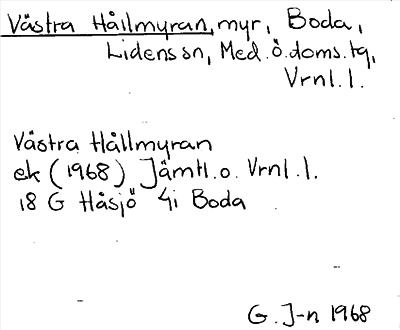 Västra Hållmyran, myr, Boda,
Lidens sn, Med.ö.doms.tg,
Vrnl.l.
Västra Hållmyran
ek (1968) Jämtl.o. Vrnl.l.
18 G Håsjö 4i Boda
G.J-n 1968